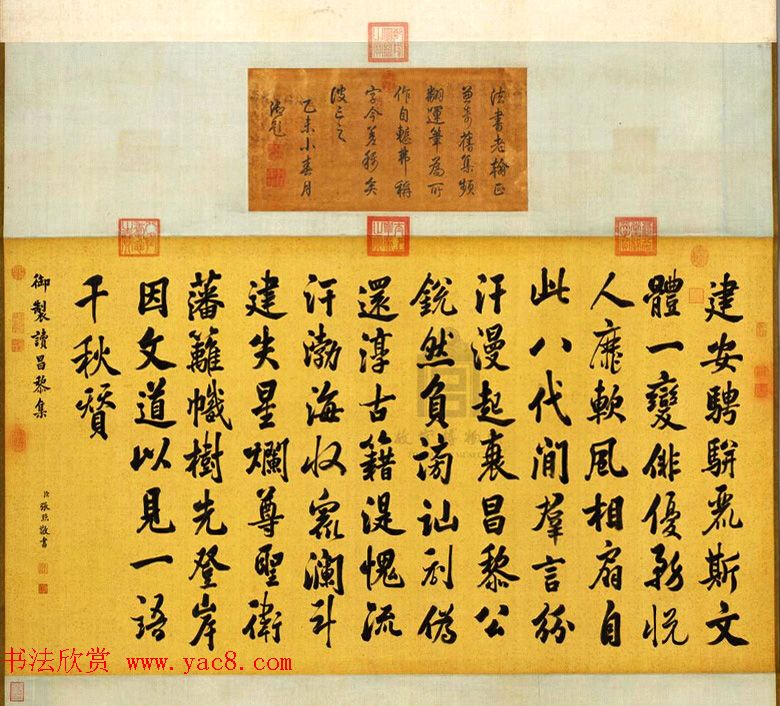 法書老翰臣
舊集頻
翻運筆為所
作自慙弗稱
字今
乙未小春月
御題
建安騁駢麗斯文
體一變俳優務悅
人靡軟風相扇自
此八代間羣言紛
汗漫起衰昌黎公
銳然負謗訕剷偽
還淳古籍湜愧流
汗渤海收瀾斗
建失星爛尊聖衛
藩籬幟樹先登岸
因文道以見一語
千秋贊
御製讀昌黎集
臣張照敬書
书法欣赏 www.yac8.com